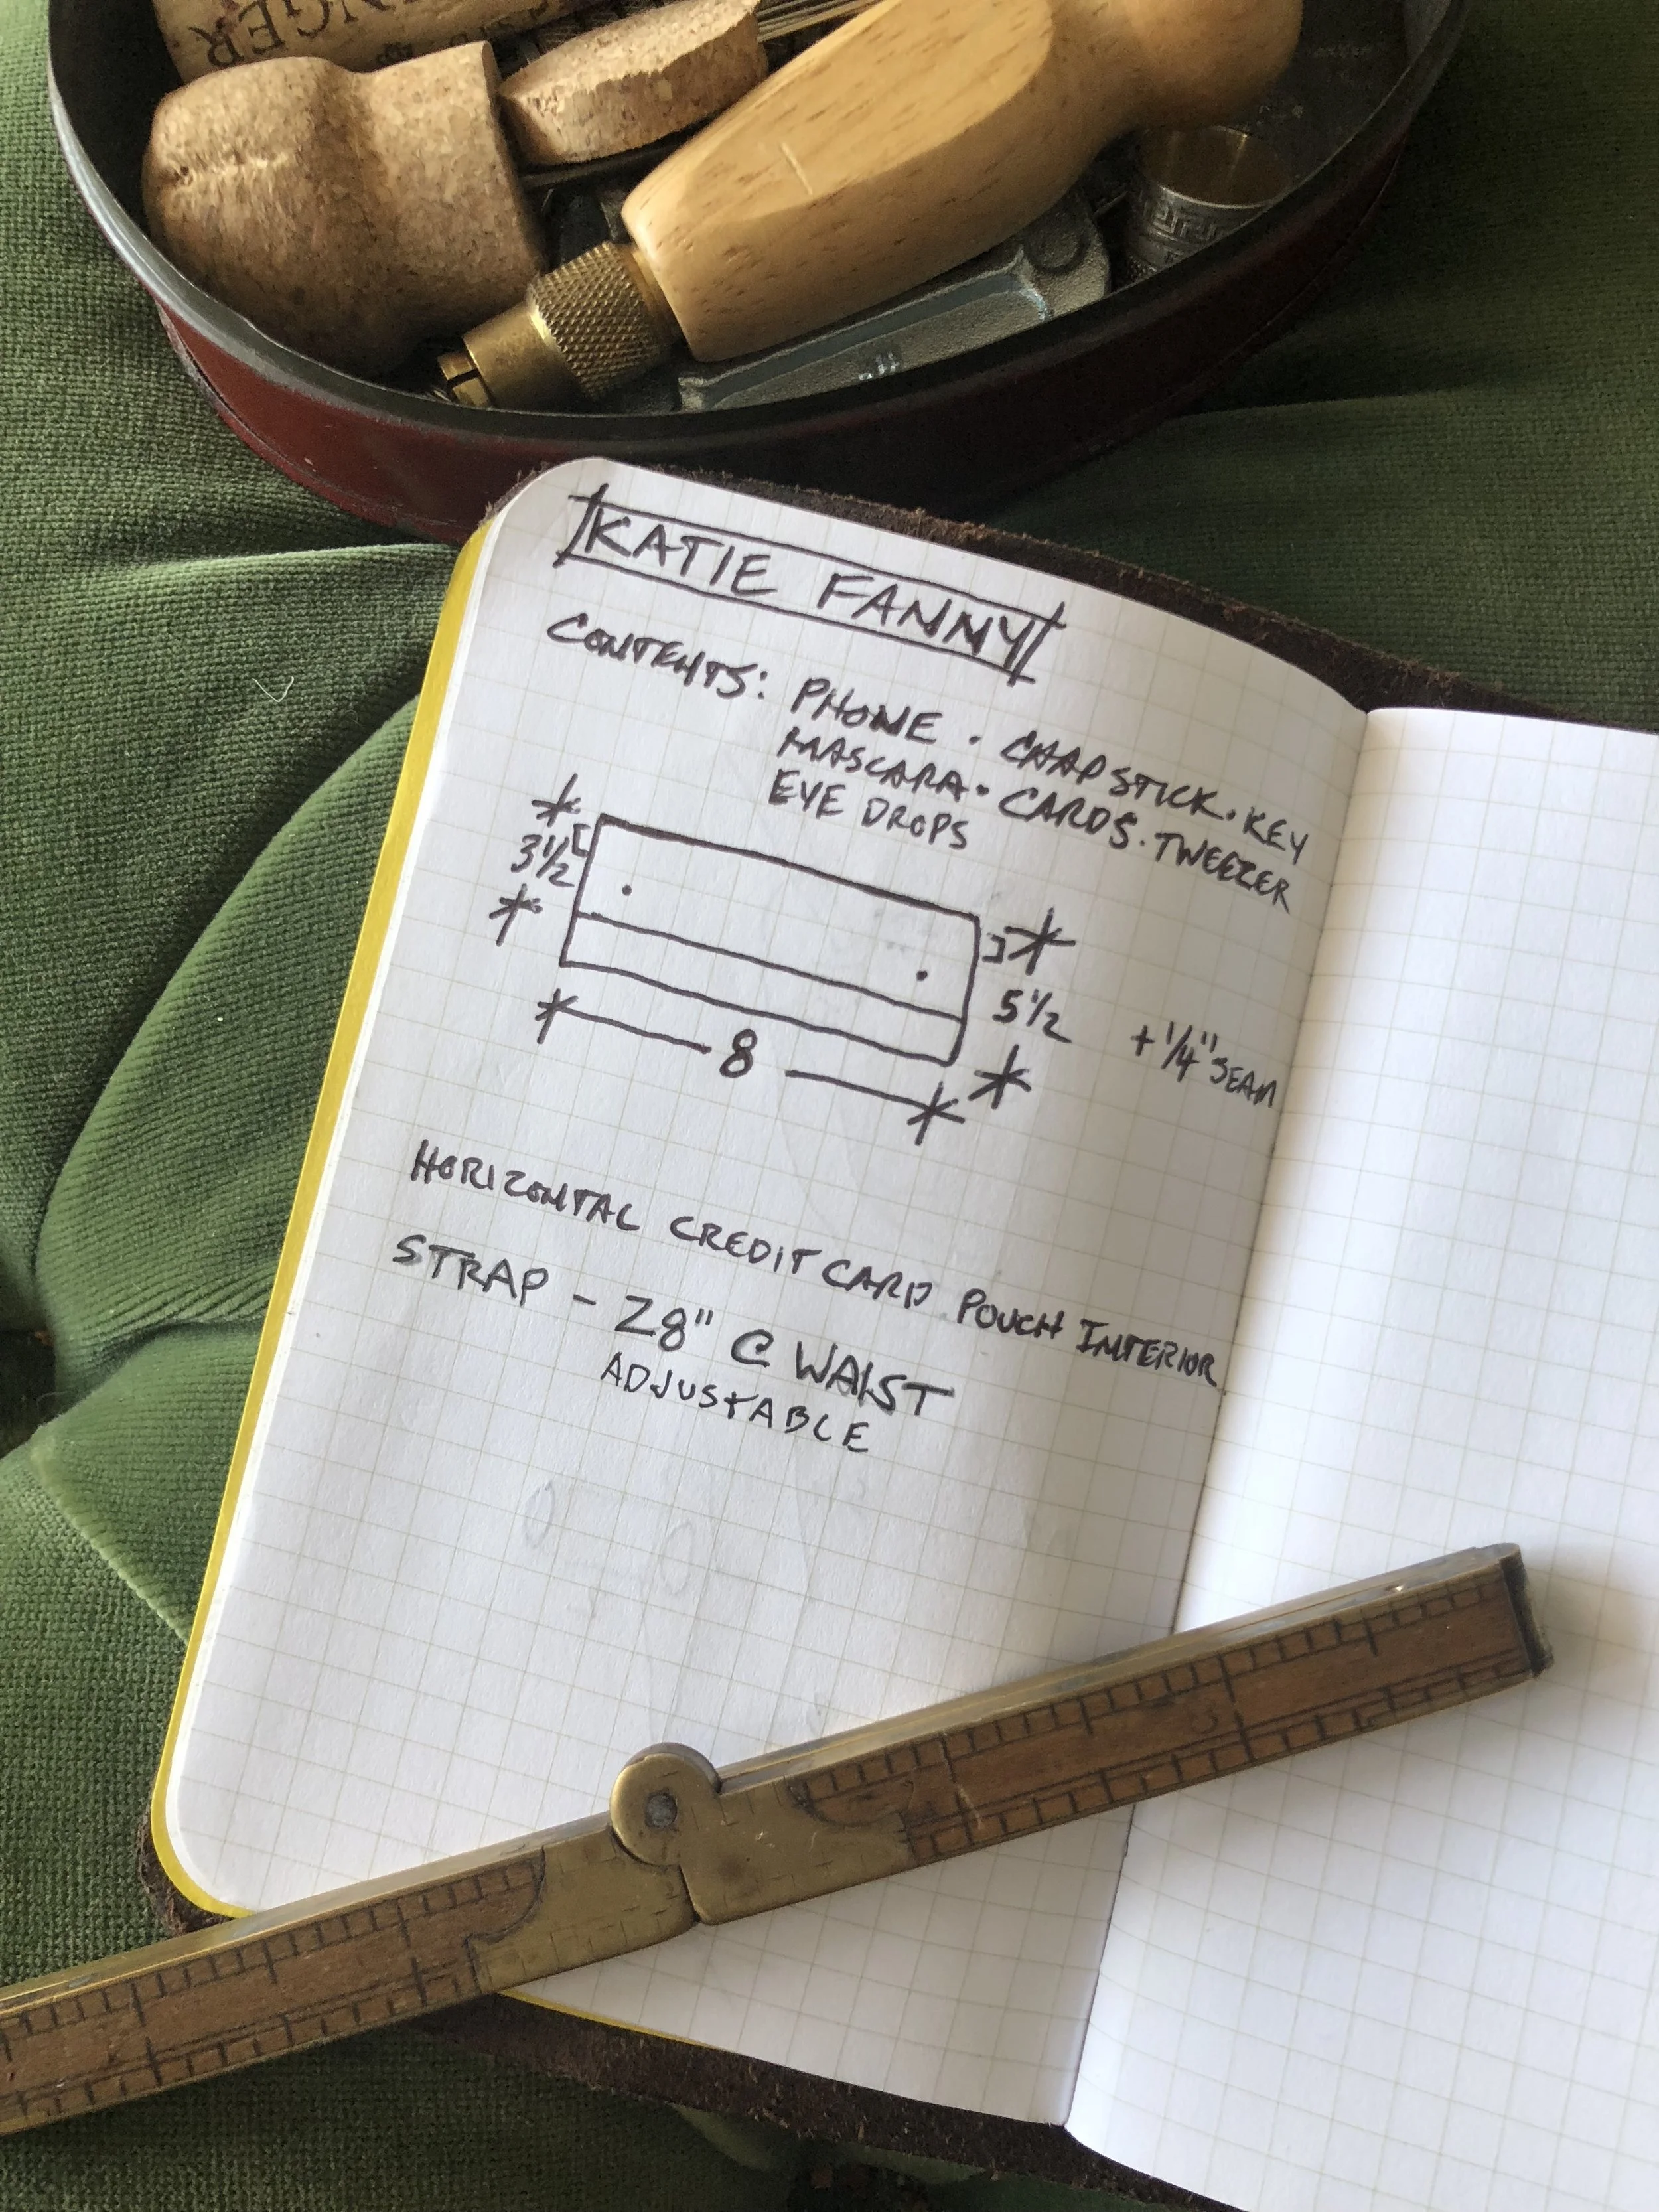 KATIE FANNY
CONTENTS: PHONE · CHAPSTICK · KEY
MASCARA · CARDS · TWEEZER
EYE DROPS
3 1/2
5 1/2
+ 1/4" SEAM
8
HORIZONTAL CREDIT CARD POUCH INTERIOR
STRAP - 28" @ WAIST
ADJUSTABLE